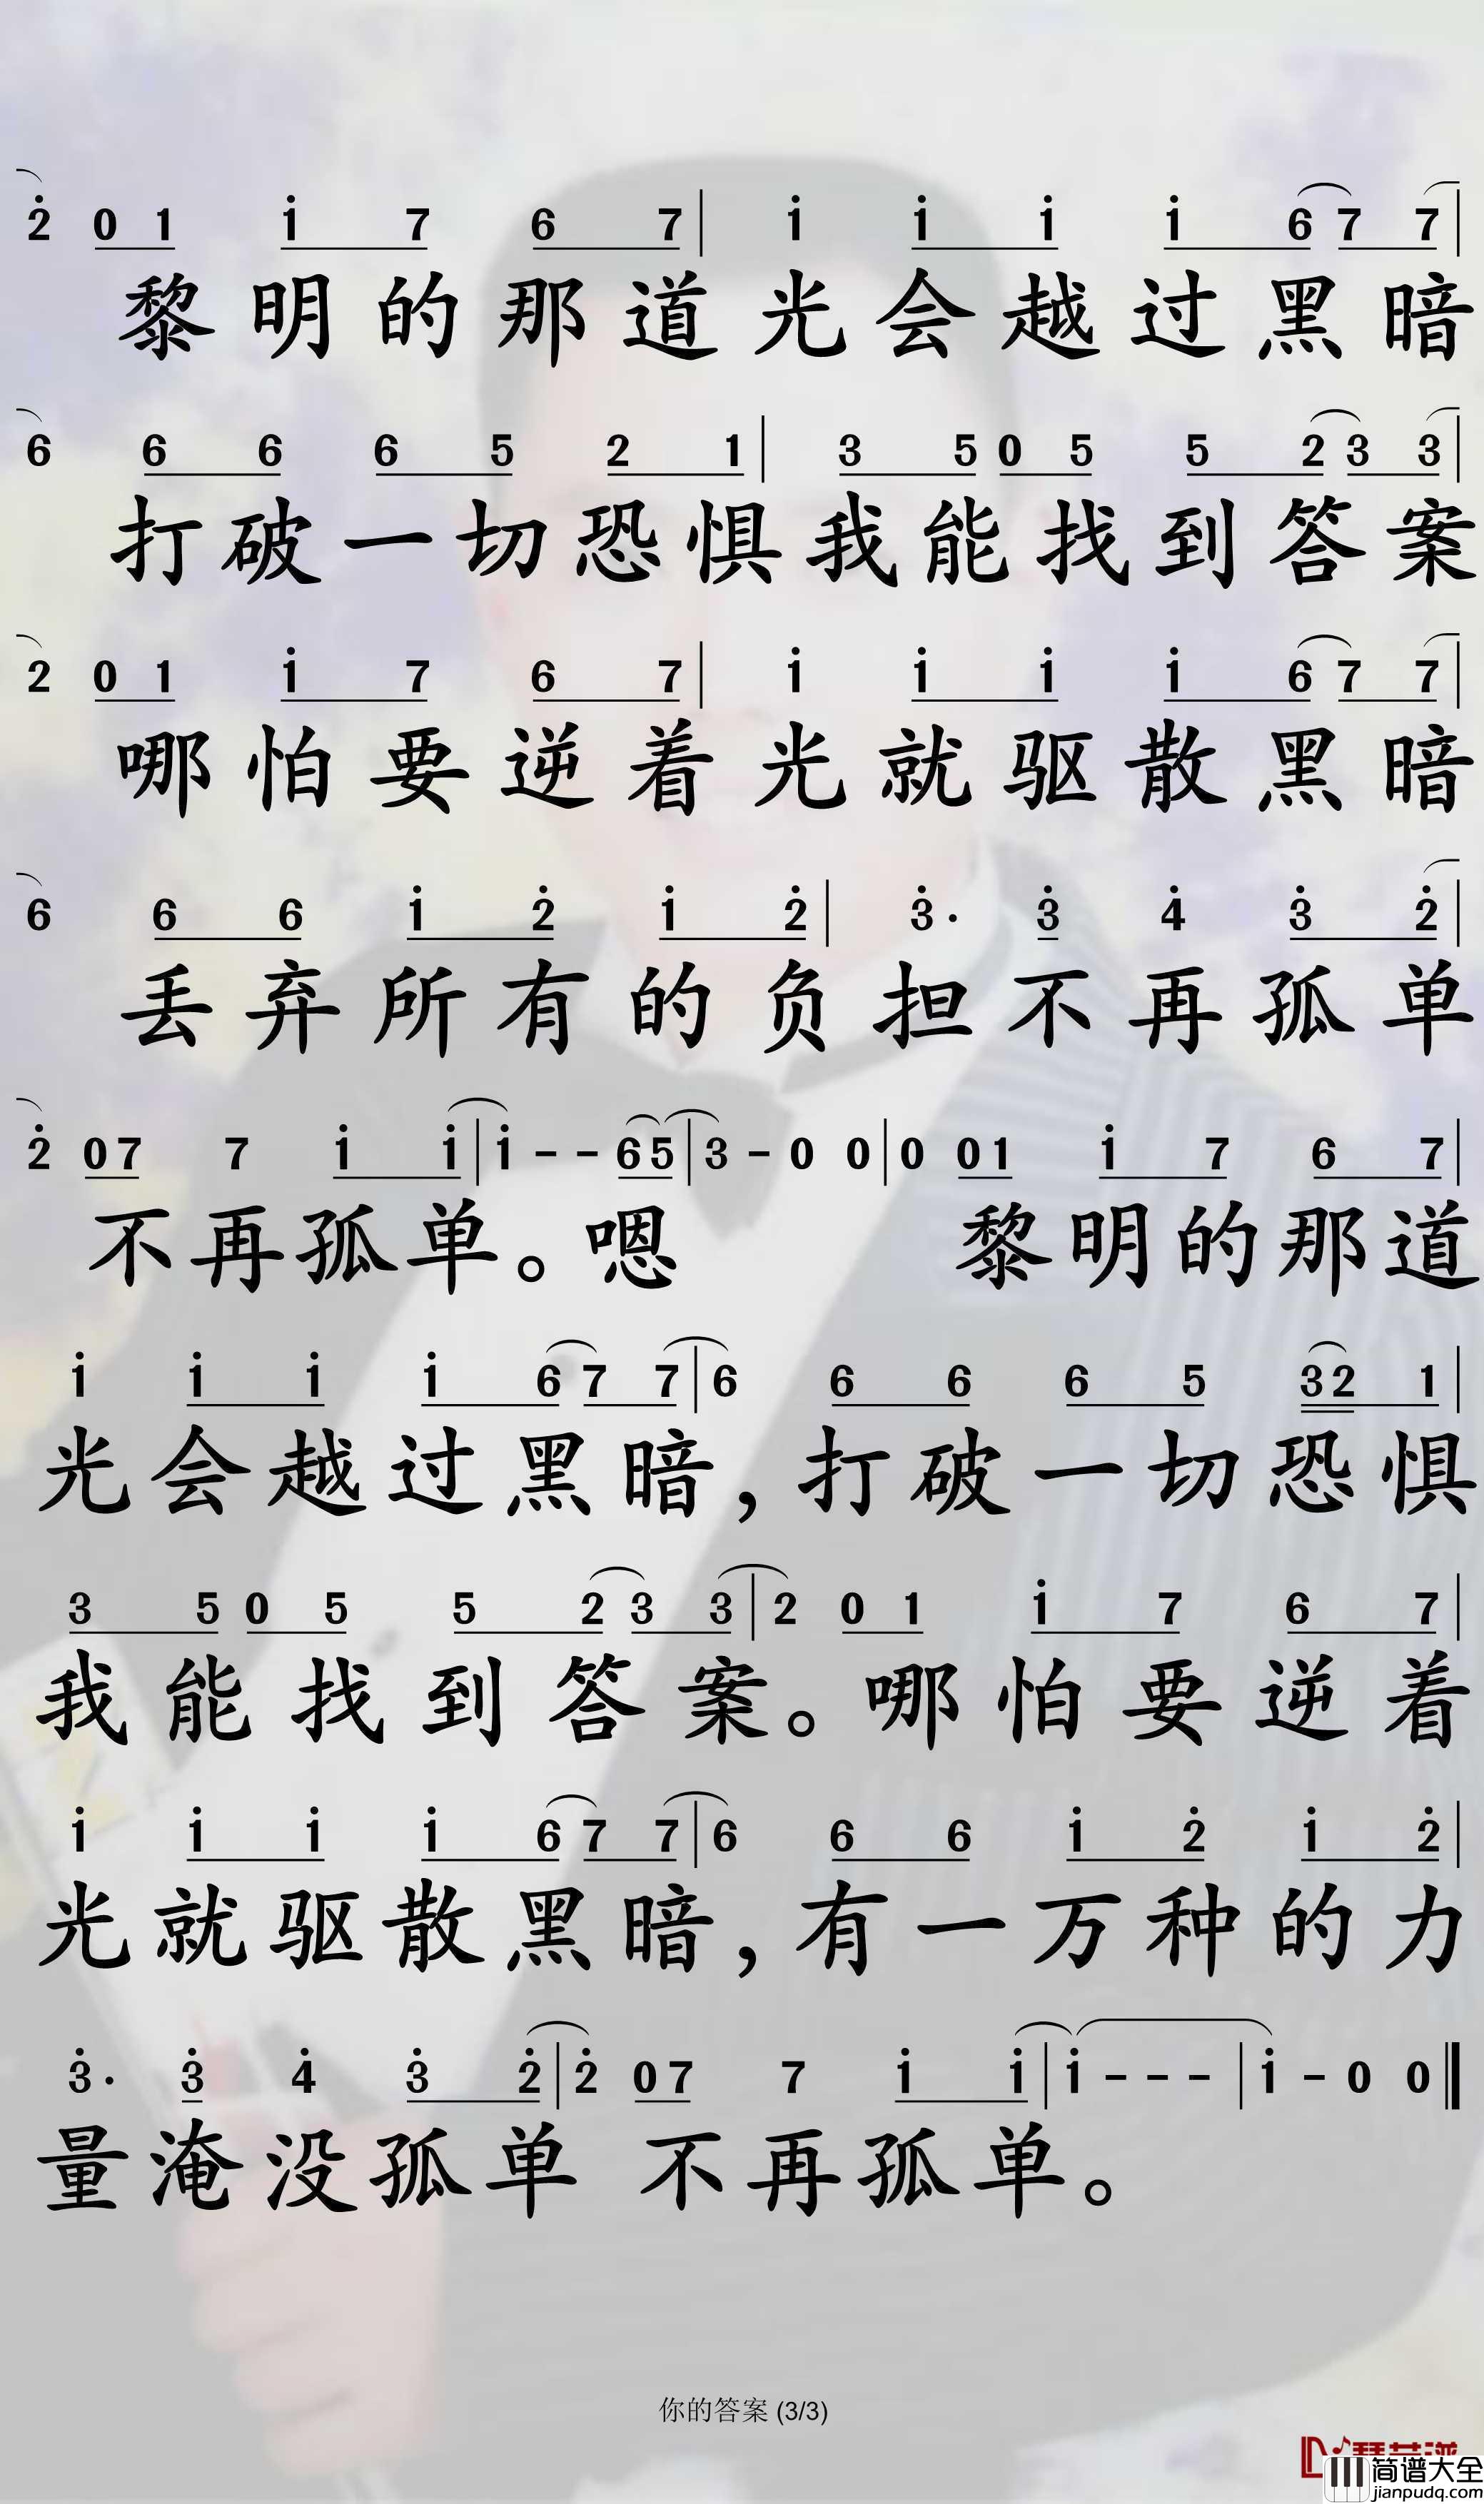 2̇ 0 1 1̇ 7 6 7 | 1̇ 1̇ 1̇ 1̇ 6 7 7 |
黎明的那道光会越过黑暗
6 6 6 6 5 2 1 | 3 5 0 5 5 2 3 3 |
打破一切恐惧我能找到答案
2 0 1 1̇ 7 6 7 | 1̇ 1̇ 1̇ 1̇ 6 7 7 |
哪怕要逆着光就驱散黑暗
6 6 6 1̇ 2̇ 1̇ 2̇ | 3̇· 3̇ 4̇ 3̇ 2̇ |
丢弃所有的负担不再孤单
2̇ 0 7 7 1̇ 1̇ | 1̇ - - 6 5 | 3 - 0 0 | 0 0 1 1̇ 7 6 7 |
不再孤单。嗯 黎明的那道
1̇ 1̇ 1̇ 1̇ 6 7 7 | 6 6 6 6 5 3 2 1 |
光会越过黑暗,打破一切恐惧
3 5 0 5 5 2 3 3 | 2 0 1 1̇ 7 6 7 |
我能找到答案。哪怕要逆着
1̇ 1̇ 1̇ 1̇ 6 7 7 | 6 6 6 1̇ 2̇ 1̇ 2̇ |
光就驱散黑暗,有一万种的力
3̇· 3̇ 4̇ 3̇ 2̇ | 2̇ 0 7 7 1̇ 1̇ | 1̇ - - - | 1̇ - 0 0 ‖
量淹没孤单 不再孤单。
你的答案 (3/3)
简谱大全
jianpudq.com